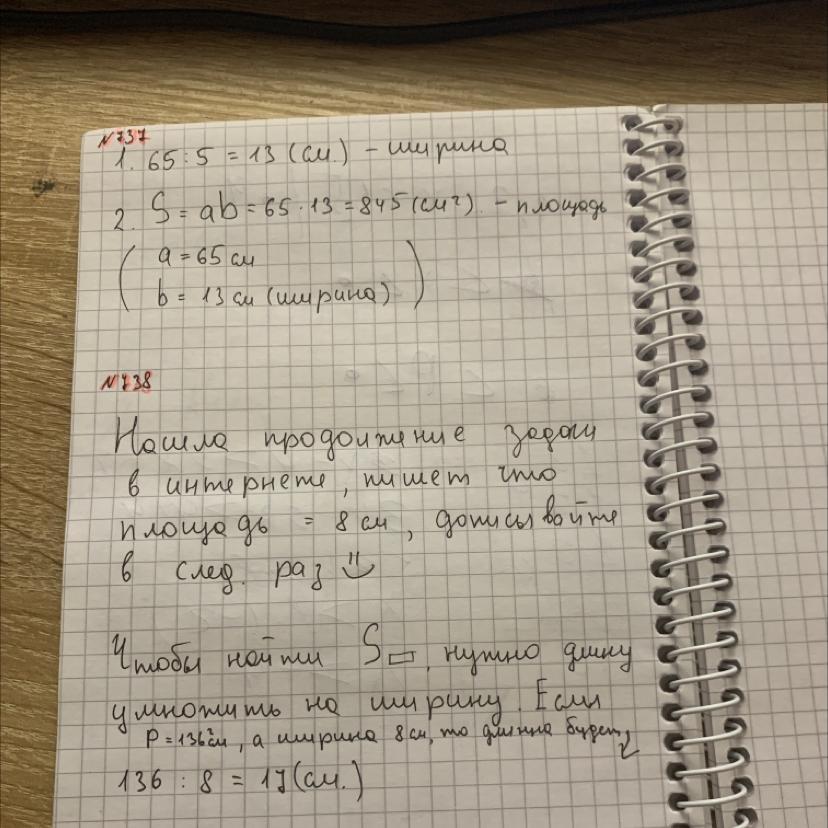 №737
1. 65 : 5 = 13 (см.) – ширина
2. S = ab = 65 · 13 = 845 (см²). – площадь
a = 65 см
b = 13 см (ширина)
№738
Нашла продолжение задачи
в интернете, пишет что
площадь = 8 см, дописывайте
в след. раз
Чтобы найти S▭, нужно длину
умножить на ширину. Если
P = 136 см, а ширина 8 см, то длинна будет
136 : 8 = 17 (см.)